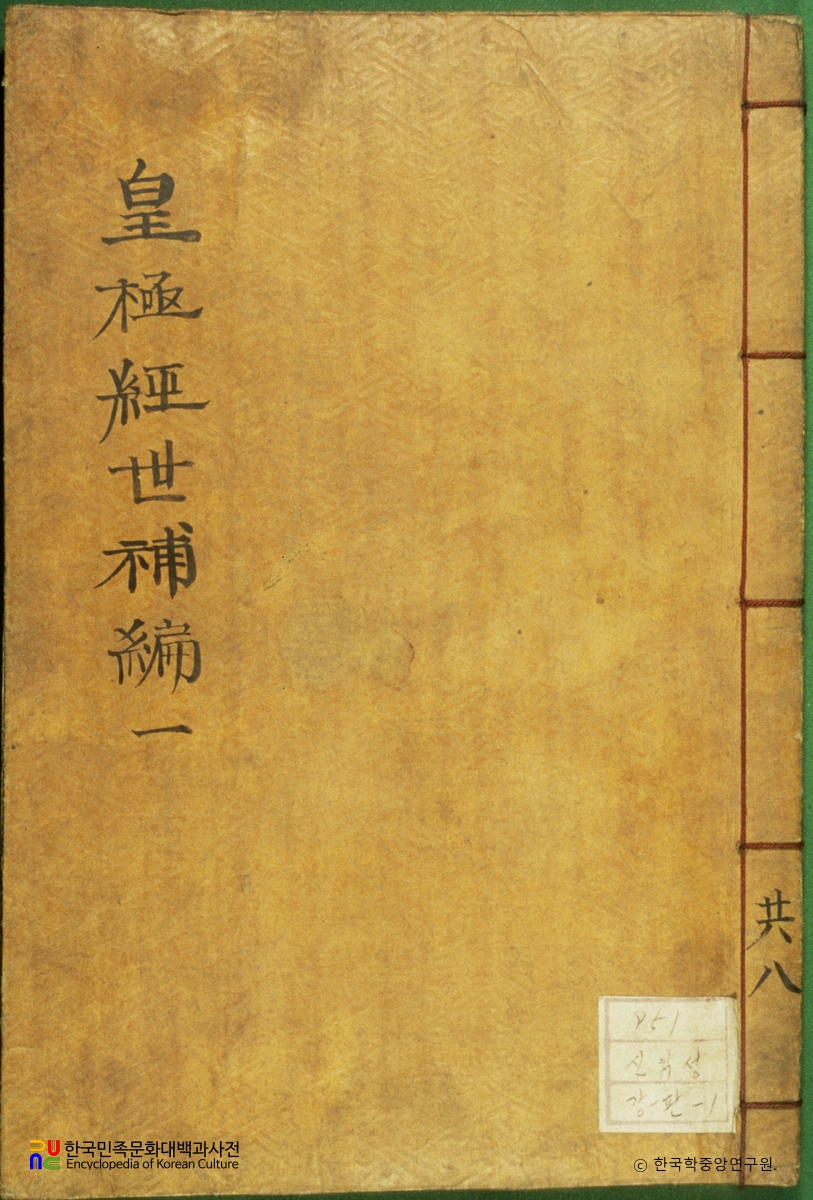 皇極經世補編一
共八
P51
신익성
강·판-1
한국민족문화대백과사전
Encyclopedia of Korean Culture
ⓒ 한국학중앙연구원.